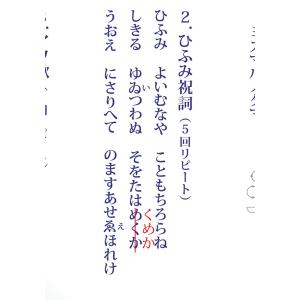 2.ひふみ祝詞(5回リピート)
ひふみ よいむなや こともちろらね
くめか
しきる ゆゐつわぬ そをたはめくか
い
うおえ にさりへて のますあせゑほれけ
え